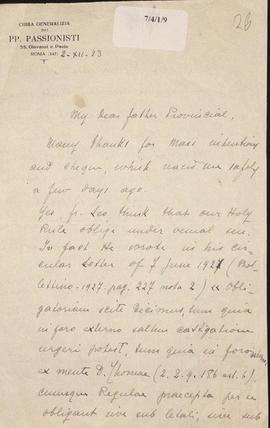 7/4/1/9
26
CURIA GENERALIZIA
DEI
PP. PASSIONISTI
SS. Giovanni e Paolo
ROMA (147) 2-XII-33
My dear Father Provincial,
Many thanks for Mass intention
and cheque, which reached me safely
a few days ago.
Yes, Fr. Leo think that our Holy
Rule obliges under venial sin.
In fact He wrote in his cir-
cular Letter of 7 June 1927 (Bol-
lettino-1927. pag. 227 nota 2) « Obli-
gatoriam scite dicimus, tum quia
in foro externo saltem castigatione
urgeri potest, tum quia in foro
ex mente D. Thomae (2. 2. q. 186 art. 6),
cuiusque Regulae praecepta per se
obligant sive sub letali, sive sub